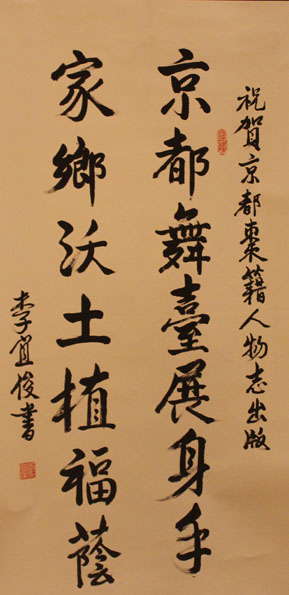 祝賀京都棗籍人物志出版
京都舞臺展身手
家鄉沃土植福蔭
李宜俊書